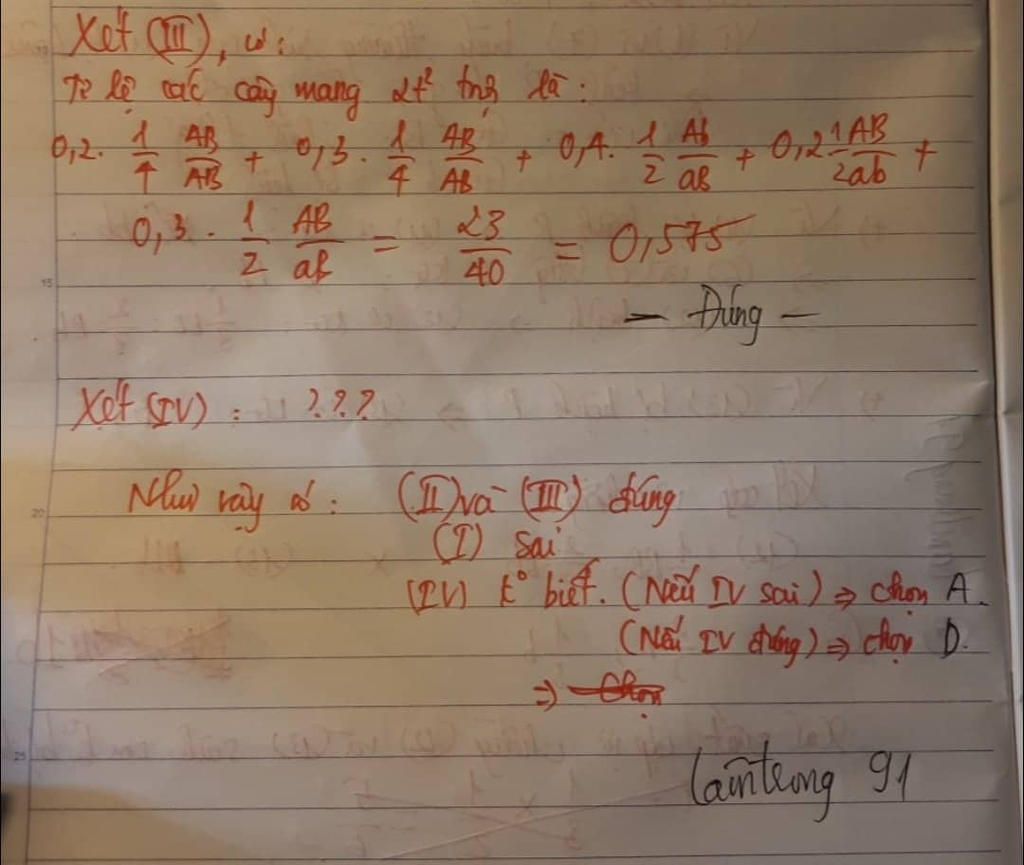 Xét (III), có:
Tỉ lệ các cây mang 2t² trội là:
0,2. 1/4 AB/AB + 0,3. 1/4 AB/AB + 0,4. 1/2 Ab/aB + 0,2 1/2 AB/ab +
0,3. 1/2 AB/aB = 23/40 = 0,575
— Đúng —
Xét (IV) : ???
Như vậy có : (II) và (III) đúng
(I) sai
(IV) k° biết. (Nếu IV sai) ⇒ chọn A.
(Nếu IV đúng) ⇒ chọn D.
⇒ Chọn
91
15
20
25